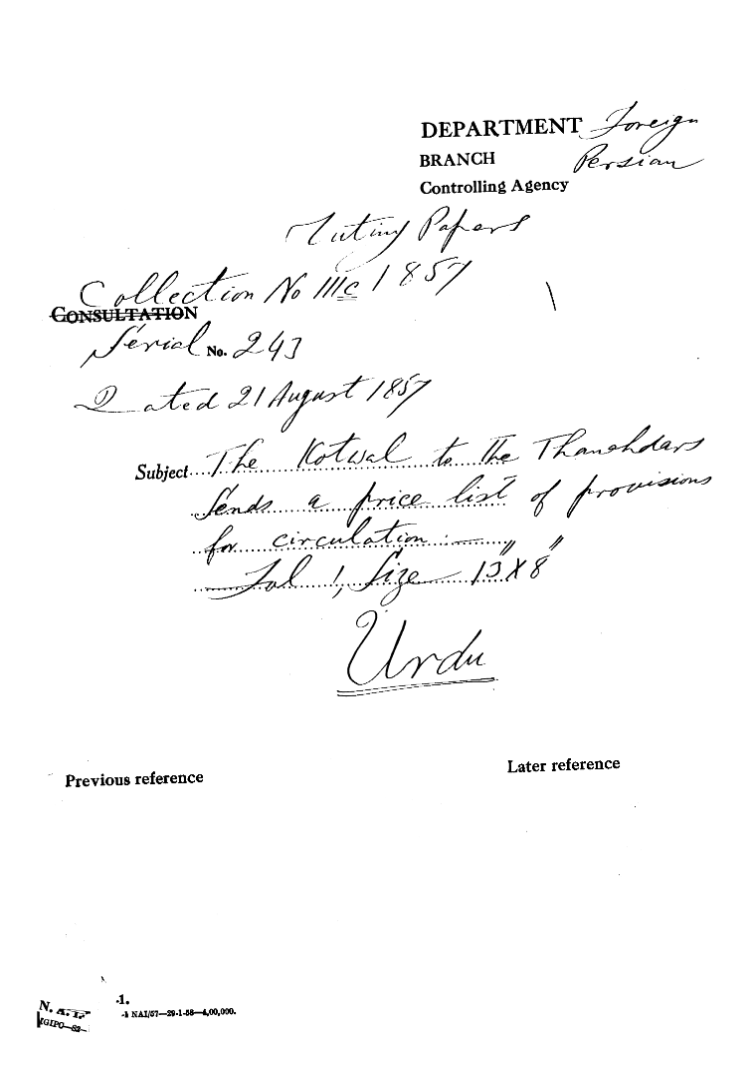 DEPARTMENT Foreign
BRANCH Persian
Controlling Agency
Mutiny Papers
Collection No IIIc 1857
CONSULTATION
Serial No. 243
Dated 21 August 1857
Subject The Kotwal to the Thanehdars
Sends a price list of provisions
for circulation :—
Fol 1, Size 13" X 8"
Urdu
Previous reference
Later reference
N. A. I.
-1.
NAI/57—29-1-58—4,00,000.